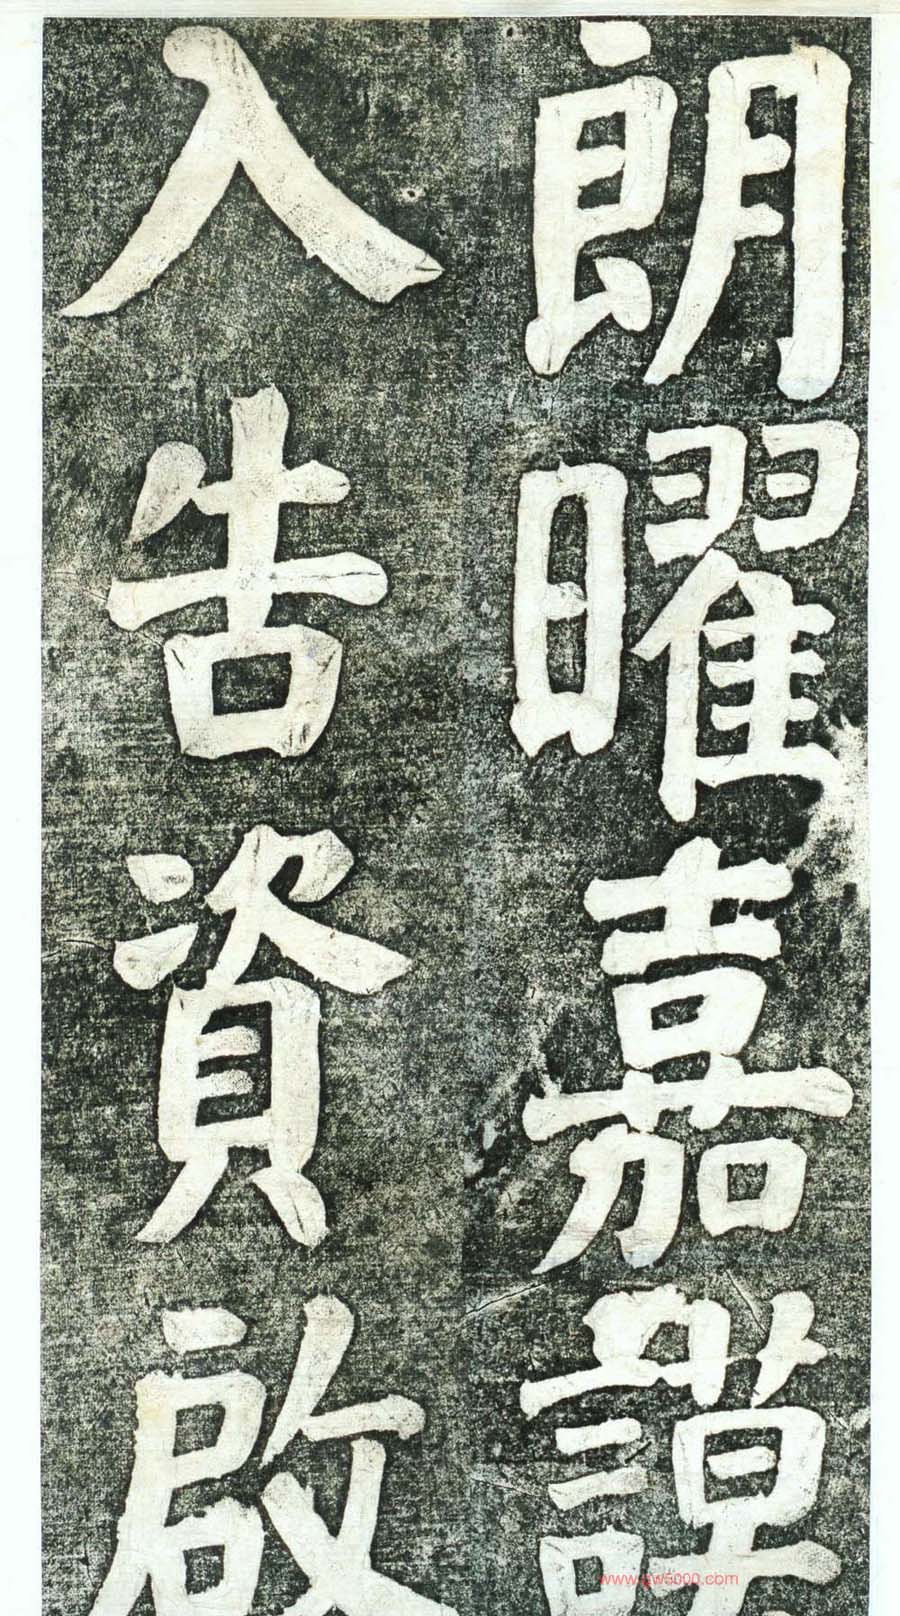 朗曜嘉謀
入告資啟
www.gw5000.com